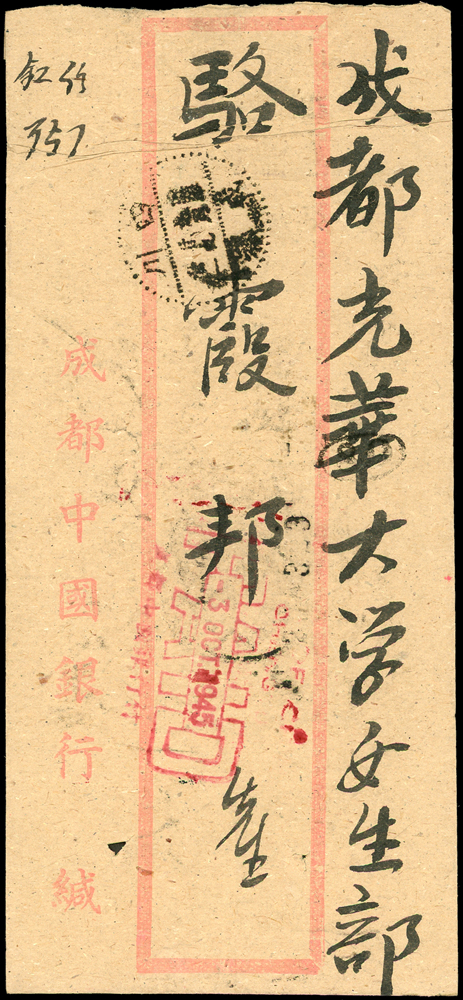 成都光華大学女生部
駱霞邦
先生
3 OCT 1945
四川
成都中國銀行緘